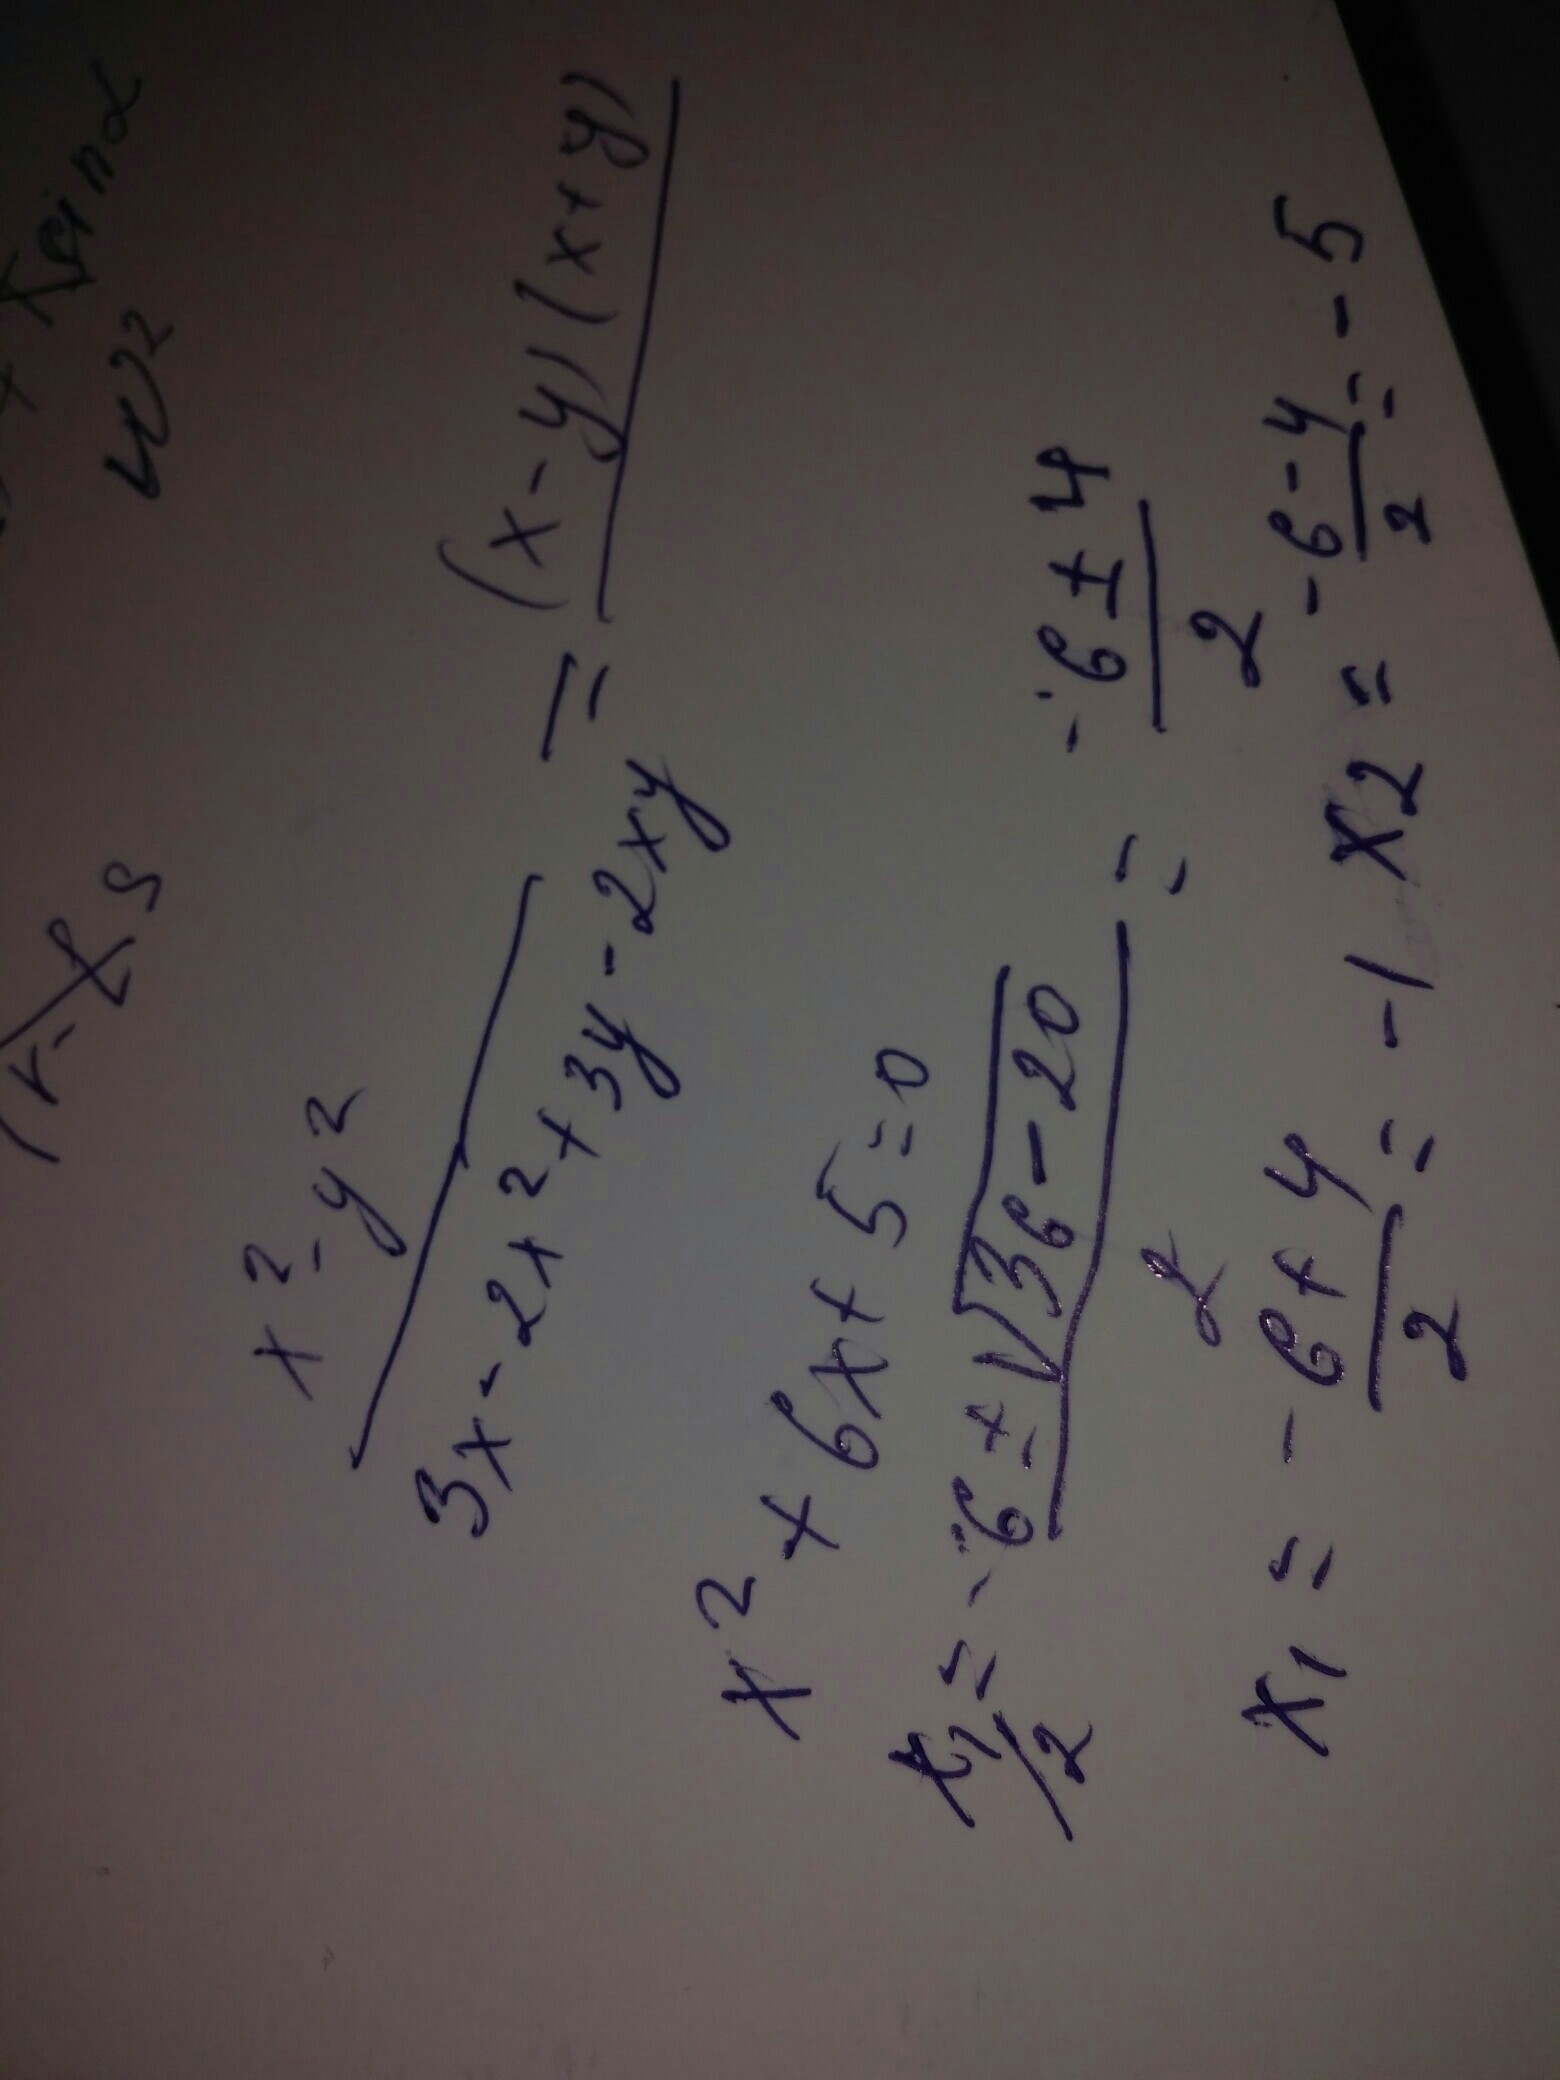 sin α
w²
x² - y² / 3x - 2x² + 3y - 2xy = (x - y)(x + y)
x² + 6x + 5 = 0
x1/2 = -6 ± √36 - 20 / 2 = -6 ± 4 / 2
x1 = -6 + 4 / 2 = -1 x2 = -6 - 4 / 2 = -5